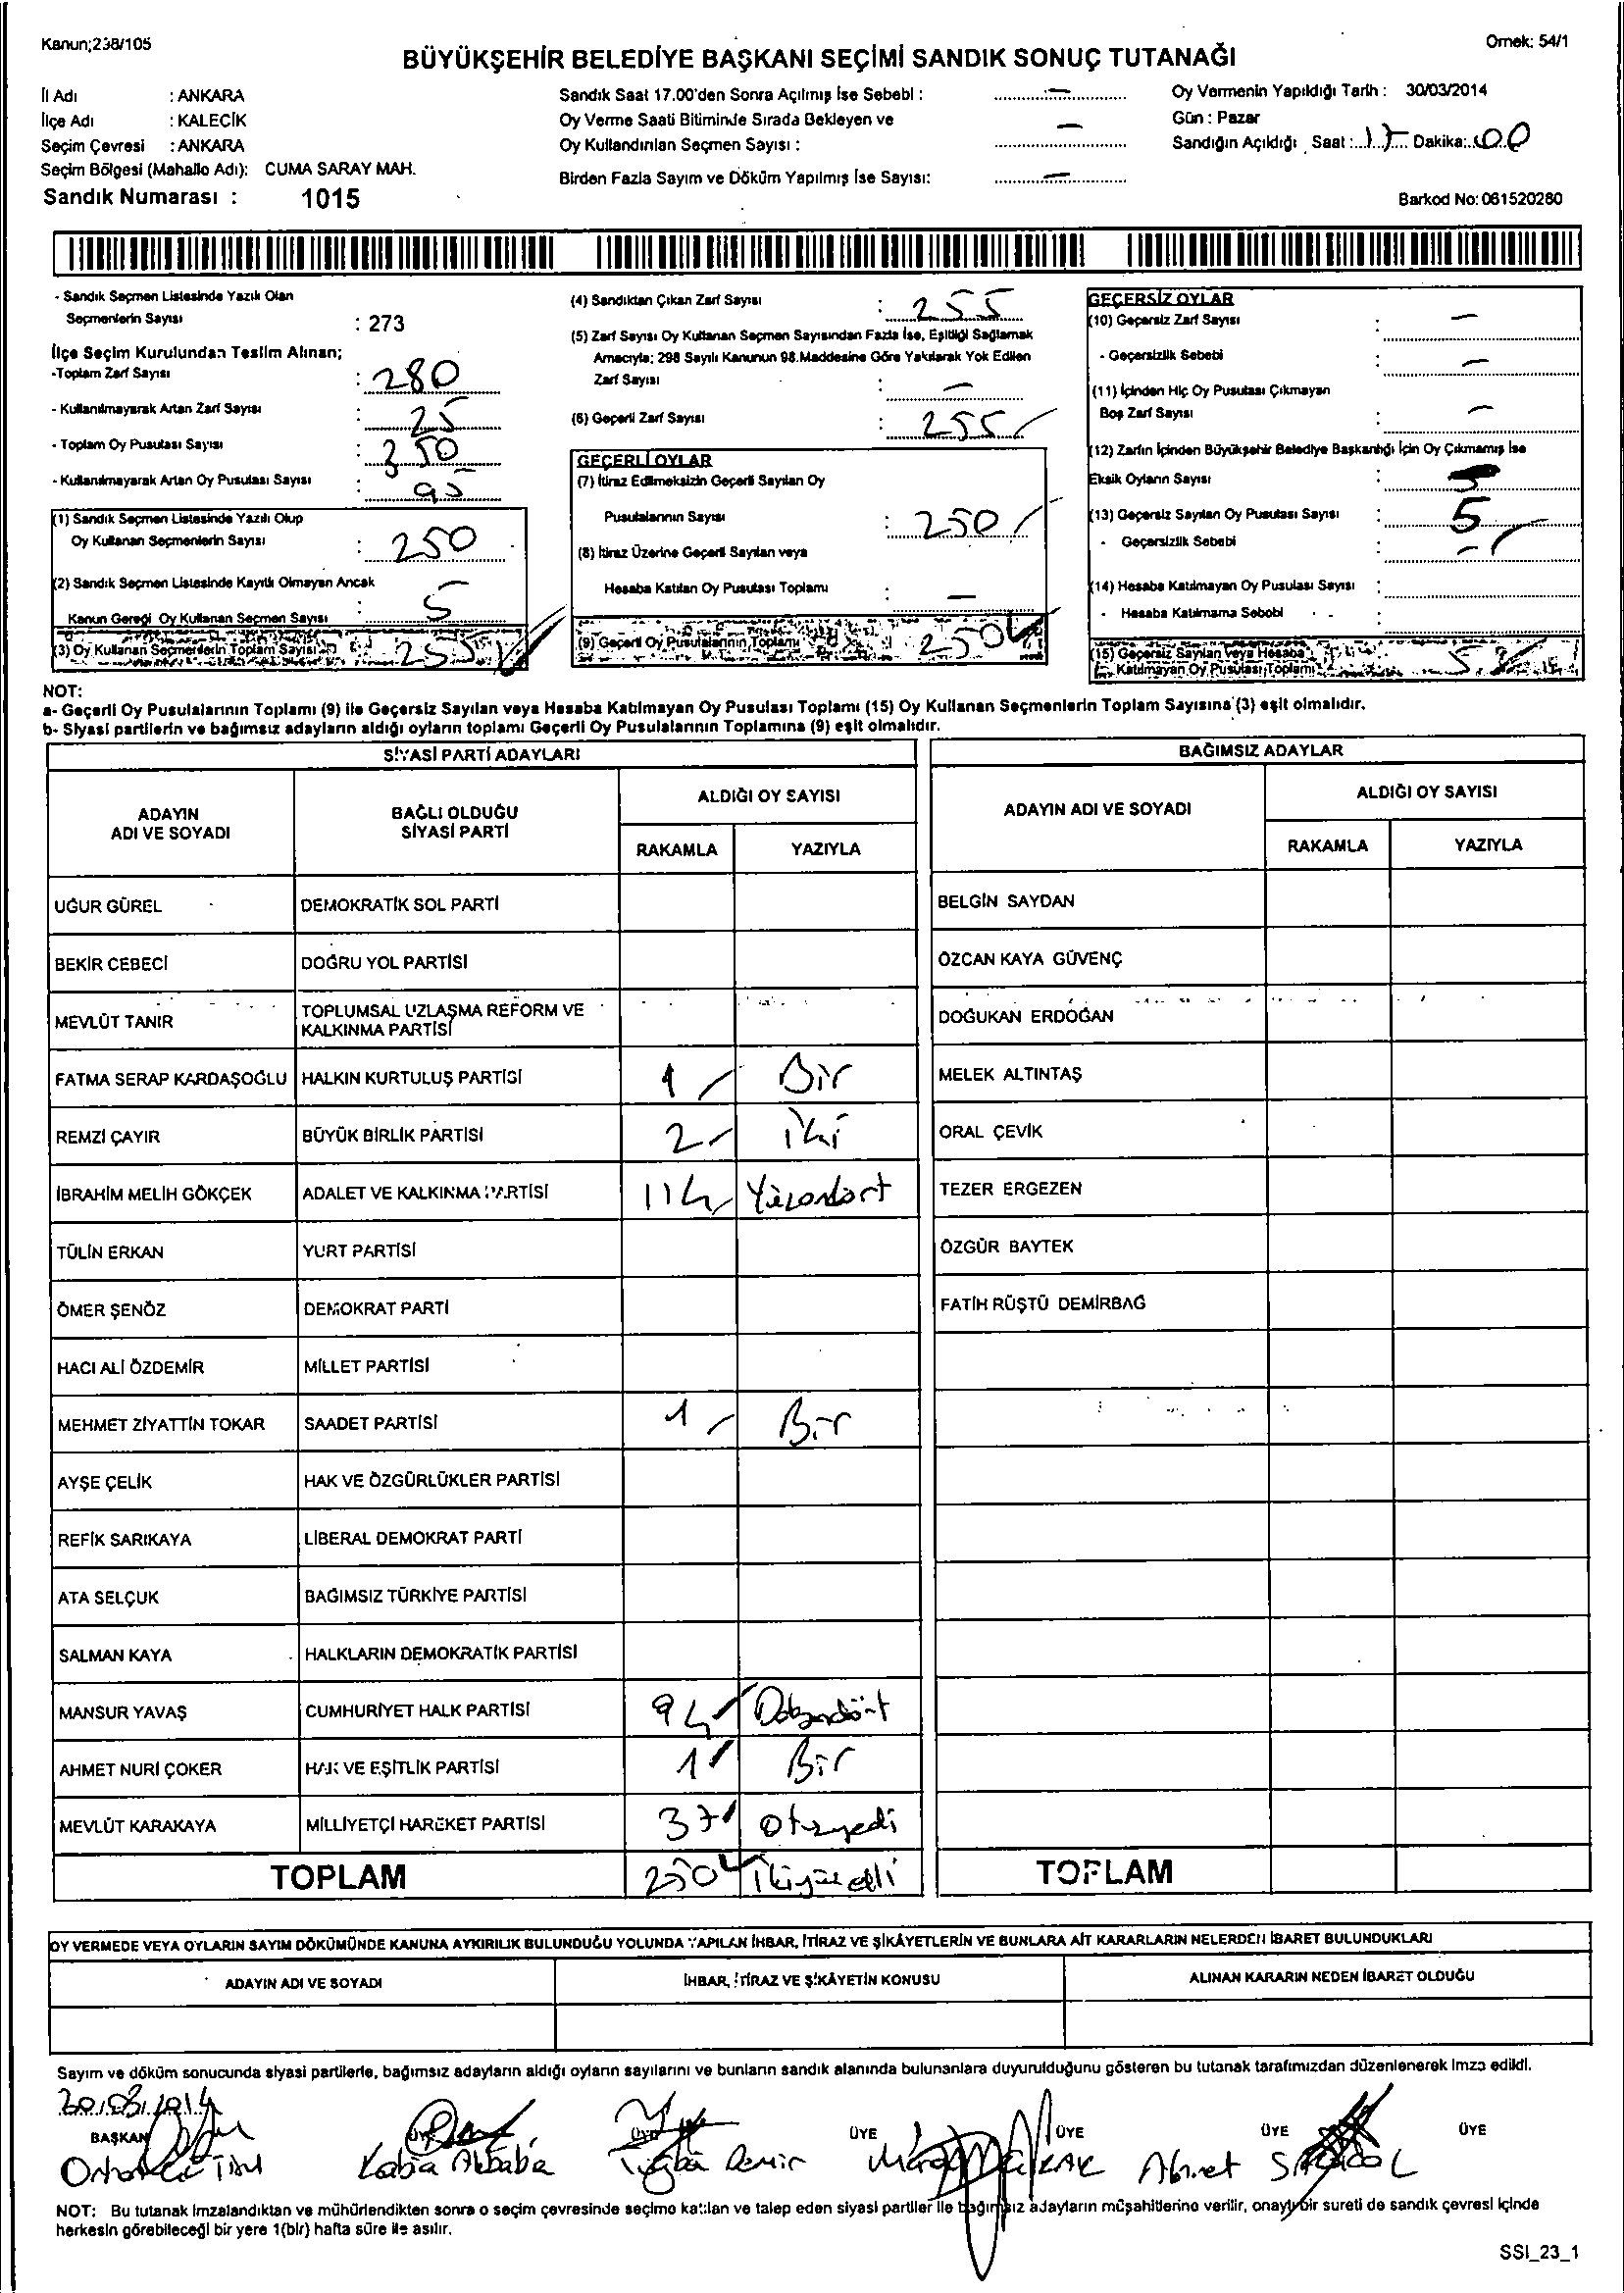 Kanun;298/105
Örnek: 54/1
BÜYÜKŞEHİR BELEDİYE BAŞKANI SEÇİMİ SANDIK SONUÇ TUTANAĞI
İl Adı : ANKARA
İlçe Adı : KALECİK
Seçim Çevresi : ANKARA
Seçim Bölgesi (Mahalle Adı): CUMA SARAY MAH.
Sandık Numarası : 1015
Sandık Saat 17.00'den Sonra Açılmış İse Sebebi : –
Oy Verme Saati Bitiminde Sırada Bekleyen ve
Oy Kullandırılan Seçmen Sayısı : –
Birden Fazla Sayım ve Döküm Yapılmış İse Sayısı: –
Oy Vermenin Yapıldığı Tarih : 30/03/2014
Gün : Pazar
Sandığın Açıldığı Saat : 17 Dakika: 00
Barkod No: 061520280
- Sandık Seçmen Listesinde Yazılı Olan
Seçmenlerin Sayısı : 273
İlçe Seçim Kurulundan Teslim Alınan;
-Toplam Zarf Sayısı : 280
- Kullanılmayarak Artan Zarf Sayısı : 25
- Toplam Oy Pusulası Sayısı : 350
- Kullanılmayarak Artan Oy Pusulası Sayısı : 95
(1) Sandık Seçmen Listesinde Yazılı Olup
Oy Kullanan Seçmenlerin Sayısı : 250
(2) Sandık Seçmen Listesinde Kayıtlı Olmayan Ancak
Kanun Gereği Oy Kullanan Seçmen Sayısı : 5
(3) Oy Kullanan Seçmenlerin Toplam Sayısı : 255
(4) Sandıktan Çıkan Zarf Sayısı : 255
(5) Zarf Sayısı Oy Kullanan Seçmen Sayısından Fazla İse, Eşitliği Sağlamak
Amacıyla; 298 Sayılı Kanunun 98.Maddesine Göre Yakılarak Yok Edilen
Zarf Sayısı : –
(6) Geçerli Zarf Sayısı : 255
GEÇERLİ OYLAR
(7) İtiraz Edilmeksizin Geçerli Sayılan Oy
Pusulalarının Sayısı : 250
(8) İtiraz Üzerine Geçerli Sayılan veya
Hesaba Katılan Oy Pusulası Toplamı : –
(9) Geçerli Oy Pusulalarının Toplamı : 250
GEÇERSİZ OYLAR
(10) Geçersiz Zarf Sayısı : –
- Geçersizlik Sebebi : –
(11) İçinden Hiç Oy Pusulası Çıkmayan
Boş Zarf Sayısı : –
(12) Zarfın İçinden Büyükşehir Belediye Başkanlığı İçin Oy Çıkmamış İse
Eksik Oyların Sayısı :
(13) Geçersiz Sayılan Oy Pusulası Sayısı : 5
- Geçersizlik Sebebi : –
(14) Hesaba Katılmayan Oy Pusulası Sayısı :
- Hesaba Katılmama Sebebi
(15) Geçersiz Sayılan veya Hesaba
Katılmayan Oy Pusulası Toplamı : 5
NOT:
a- Geçerli Oy Pusulalarının Toplamı (9) ile Geçersiz Sayılan veya Hesaba Katılmayan Oy Pusulası Toplamı (15) Oy Kullanan Seçmenlerin Toplam Sayısına (3) eşit olmalıdır.
b- Siyasi partilerin ve bağımsız adayların aldığı oyların toplamı Geçerli Oy Pusulalarının Toplamına (9) eşit olmalıdır.
SİYASİ PARTİ ADAYLARI
ADAYIN ADI VE SOYADI
BAĞLI OLDUĞU SİYASİ PARTİ
ALDIĞI OY SAYISI
RAKAMLA YAZIYLA
UĞUR GÜREL DEMOKRATİK SOL PARTİ
BEKİR CEBECİ DOĞRU YOL PARTİSİ
MEVLÜT TANIR TOPLUMSAL UZLAŞMA REFORM VE KALKINMA PARTİSİ
FATMA SERAP KARDAŞOĞLU HALKIN KURTULUŞ PARTİSİ 1 Bir
REMZİ ÇAYIR BÜYÜK BİRLİK PARTİSİ 2 iki
İBRAHİM MELİH GÖKÇEK ADALET VE KALKINMA PARTİSİ 114 Yüzondört
TÜLİN ERKAN YURT PARTİSİ
ÖMER ŞENÖZ DEMOKRAT PARTİ
HACI ALİ ÖZDEMİR MİLLET PARTİSİ
MEHMET ZİYATTİN TOKAR SAADET PARTİSİ 1 Bir
AYŞE ÇELİK HAK VE ÖZGÜRLÜKLER PARTİSİ
REFİK SARIKAYA LİBERAL DEMOKRAT PARTİ
ATA SELÇUK BAĞIMSIZ TÜRKİYE PARTİSİ
SALMAN KAYA HALKLARIN DEMOKRATİK PARTİSİ
MANSUR YAVAŞ CUMHURİYET HALK PARTİSİ 94 Doksandört
AHMET NURİ ÇOKER HAK VE EŞİTLİK PARTİSİ 1 Bir
MEVLÜT KARAKAYA MİLLİYETÇİ HAREKET PARTİSİ 37 Otuzyedi
TOPLAM 250 İkiyüzelli
BAĞIMSIZ ADAYLAR
ADAYIN ADI VE SOYADI
ALDIĞI OY SAYISI
RAKAMLA YAZIYLA
BELGİN SAYDAN
ÖZCAN KAYA GÜVENÇ
DOĞUKAN ERDOĞAN
MELEK ALTINTAŞ
ORAL ÇEVİK
TEZER ERGEZEN
ÖZGÜR BAYTEK
FATİH RÜŞTÜ DEMİRBAĞ
TOPLAM
OY VERMEDE VEYA OYLARIN SAYIM DÖKÜMÜNDE KANUNA AYKIRILIK BULUNDUĞU YOLUNDA YAPILAN İHBAR, İTİRAZ VE ŞİKÂYETLERİN VE BUNLARA AİT KARARLARIN NELERDEN İBARET BULUNDUKLARI
ADAYIN ADI VE SOYADI
İHBAR, İTİRAZ VE ŞİKÂYETİN KONUSU
ALINAN KARARIN NEDEN İBARET OLDUĞU
Sayım ve döküm sonucunda siyasi partilerle, bağımsız adayların aldığı oyların sayılarını ve bunların sandık alanında bulunanlara duyurulduğunu gösteren bu tutanak tarafımızdan düzenlenerek imza edildi.
30.03.2014
BAŞKAN ÜYE ÜYE ÜYE ÜYE ÜYE ÜYE
Tuğba Demir Ahmet
NOT: Bu tutanak imzalandıktan ve mühürlendikten sonra o seçim çevresinde seçime katılan ve talep eden siyasi partiler ile bağımsız adayların müşahitlerine verilir, onaylı bir sureti de sandık çevresi içinde
herkesin görebileceği bir yere 1(bir) hafta süre ile asılır.
SSI_23_1